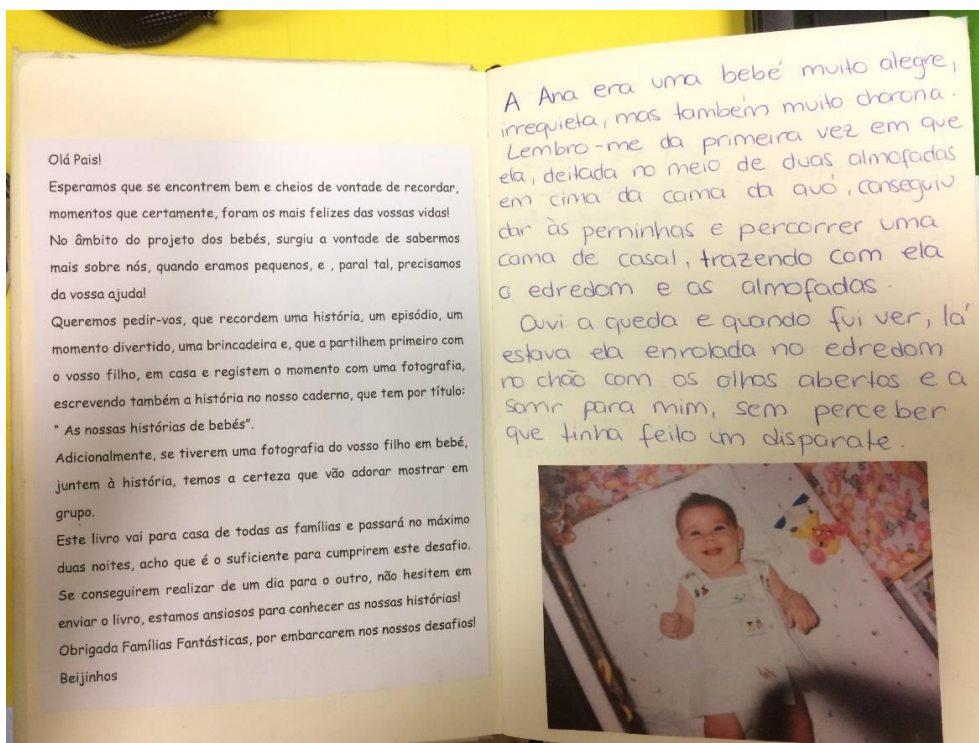 Olá Pais!
Esperamos que se encontrem bem e cheios de vontade de recordar,
momentos que certamente, foram os mais felizes das vossas vidas!
No âmbito do projeto dos bebés, surgiu a vontade de sabermos
mais sobre nós, quando eramos pequenos, e , paral tal, precisamos
da vossa ajuda!
Queremos pedir-vos, que recordem uma história, um episódio, um
momento divertido, uma brincadeira e, que a partilhem primeiro com
o vosso filho, em casa e registem o momento com uma fotografia,
escrevendo também a história no nosso caderno, que tem por título:
" As nossas histórias de bebés".
Adicionalmente, se tiverem uma fotografia do vosso filho em bebé,
juntem à história, temos a certeza que vão adorar mostrar em
grupo.
Este livro vai para casa de todas as famílias e passará no máximo
duas noites, acho que é o suficiente para cumprirem este desafio.
Se conseguirem realizar de um dia para o outro, não hesitem em
enviar o livro, estamos ansiosos para conhecer as nossas histórias!
Obrigada Famílias Fantásticas, por embarcarem nos nossos desafios!
Beijinhos
A Ana era uma bebé muito alegre,
irrequieta, mas também muito chorona.
Lembro-me da primeira vez em que
ela, deitada no meio de duas almofadas
em cima da cama da avó, conseguiu
dar às perninhas e percorrer uma
cama de casal, trazendo com ela
o edredom e as almofadas.
Ouvi a queda e quando fui ver, lá
estava ela enrolada no edredom
no chão com os olhos abertos e a
sorrir para mim, sem perceber
que tinha feito um disparate.